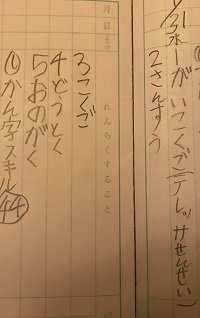 /31水1がいこくご(テレッサせんせい)
2さんすう
月 日
れんらくすること
3こくご
4どうとく
5おんがく
かん字スキル44